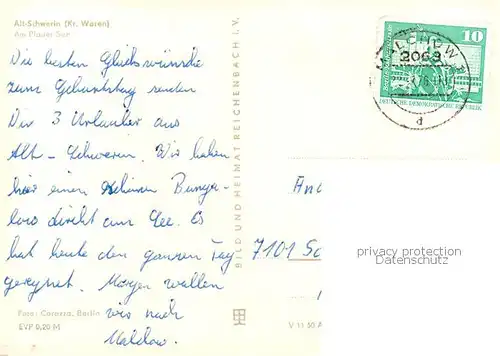 Alt-Schwerin (Kr. Waren)
Am Plauer See
Die besten Glückswünsche
zum Geburtstag senden
Dir 3 Urlauber aus
Alt-Schwerin. Wir haben
hier einen schönen Bunga-
low direkt am See. Es
hat heute den ganzen Tag
geregnet. Morgen wollen
wir nach
Malchow.
Foto: Carossa, Berlin
EVP 0,20 M
BILD UND HEIMAT REICHENBACH I. V.
V 11 50 A
10
DEUTSCHE DEMOKRATISCHE REPUBLIK
MALCHOW
2063
d
An
7101
privacy protection
Datenschutz